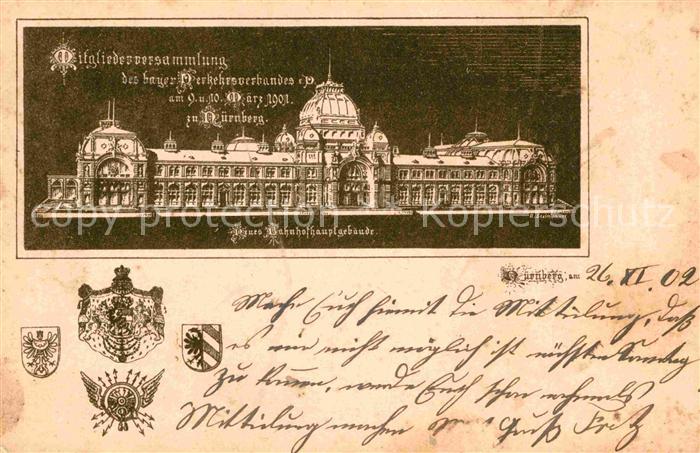 Mitgliederversammlung
des bayer. Verkehrsverbandes e.V.
am 9. u. 10. März 1901.
zu Nürnberg.
copy protection watermark Kopierschutz
Neues Bahnhofhauptgebäude.
Nürnberg, am 26. XI. 02
Mache Euch hiermit die Mitteilung, daß
es mir nicht möglich ist nächsten Sonntag
zu kommen, werde Euch schon nochmals
Mitteilung machen Gruß Fritz